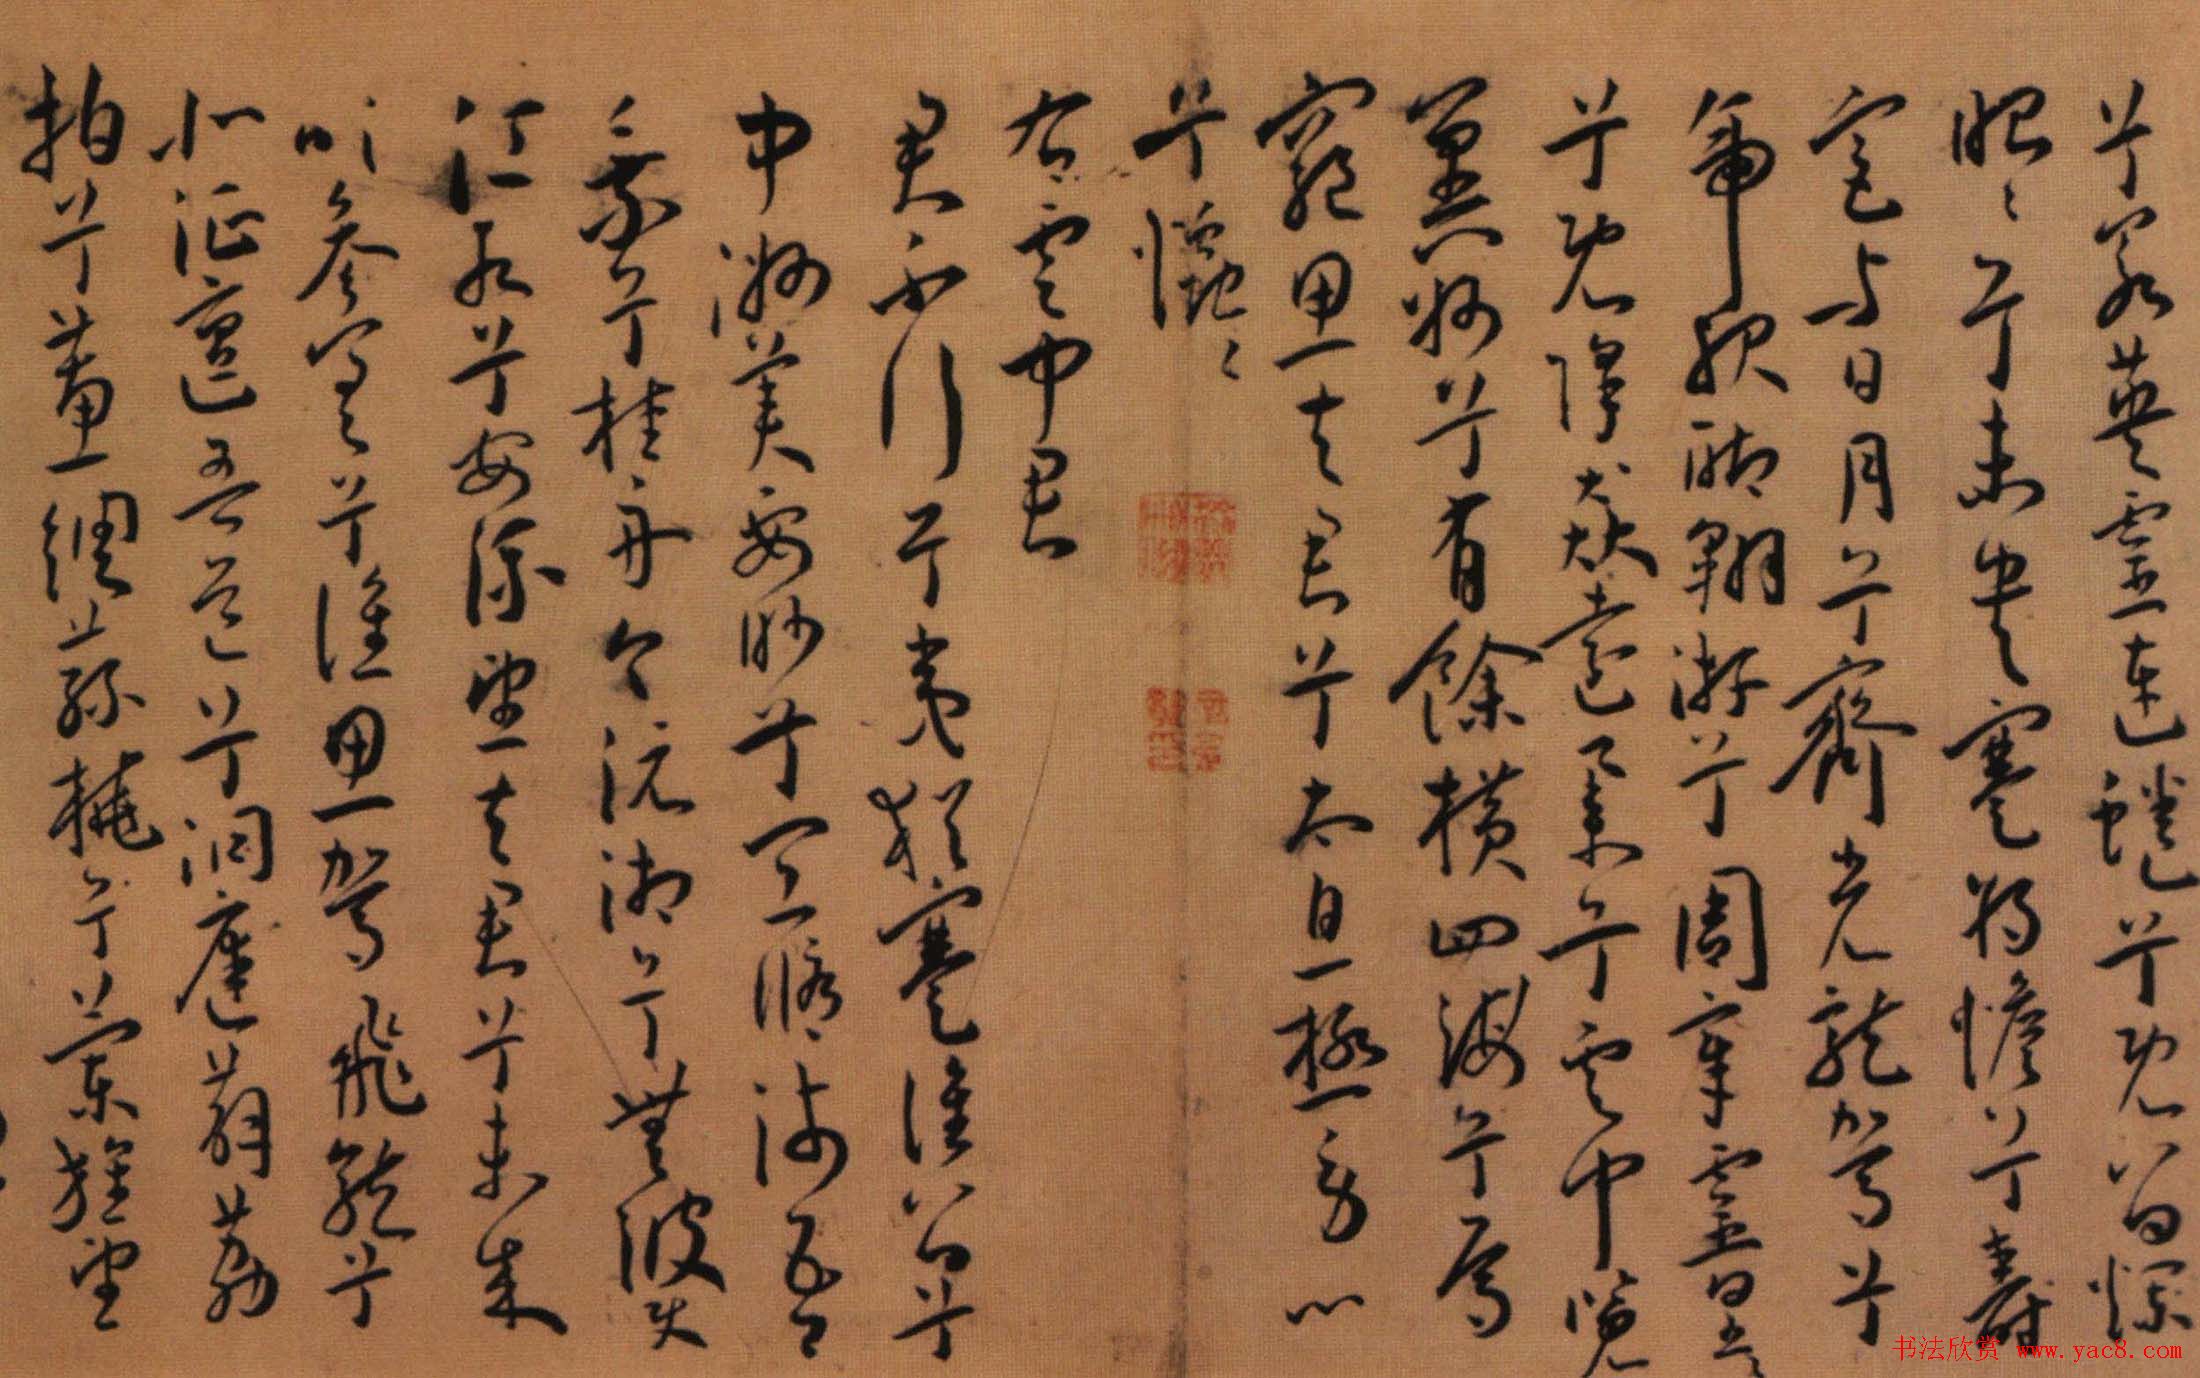 兮若英靈連蜷兮既留爛
昭〻兮未央蹇將憺兮壽
宮與日月兮齊光龍駕兮
帝服聊翱游兮周章靈皇〻
兮既降猋遠舉兮雲中覽
冀州兮有餘橫四海兮焉
窮思夫君兮太息極勞心
兮
右雲中君
君不行兮夷猶蹇誰留兮
中洲美要眇兮宜脩沛吾
乘兮桂舟令沅湘兮無波使
江水兮安流望夫君兮未來
吹參差兮誰思駕飛龍兮
北征邅吾道兮洞庭薜荔
拍兮蕙綢蓀橈兮蘭旌望
书法欣赏 www.yac8.com